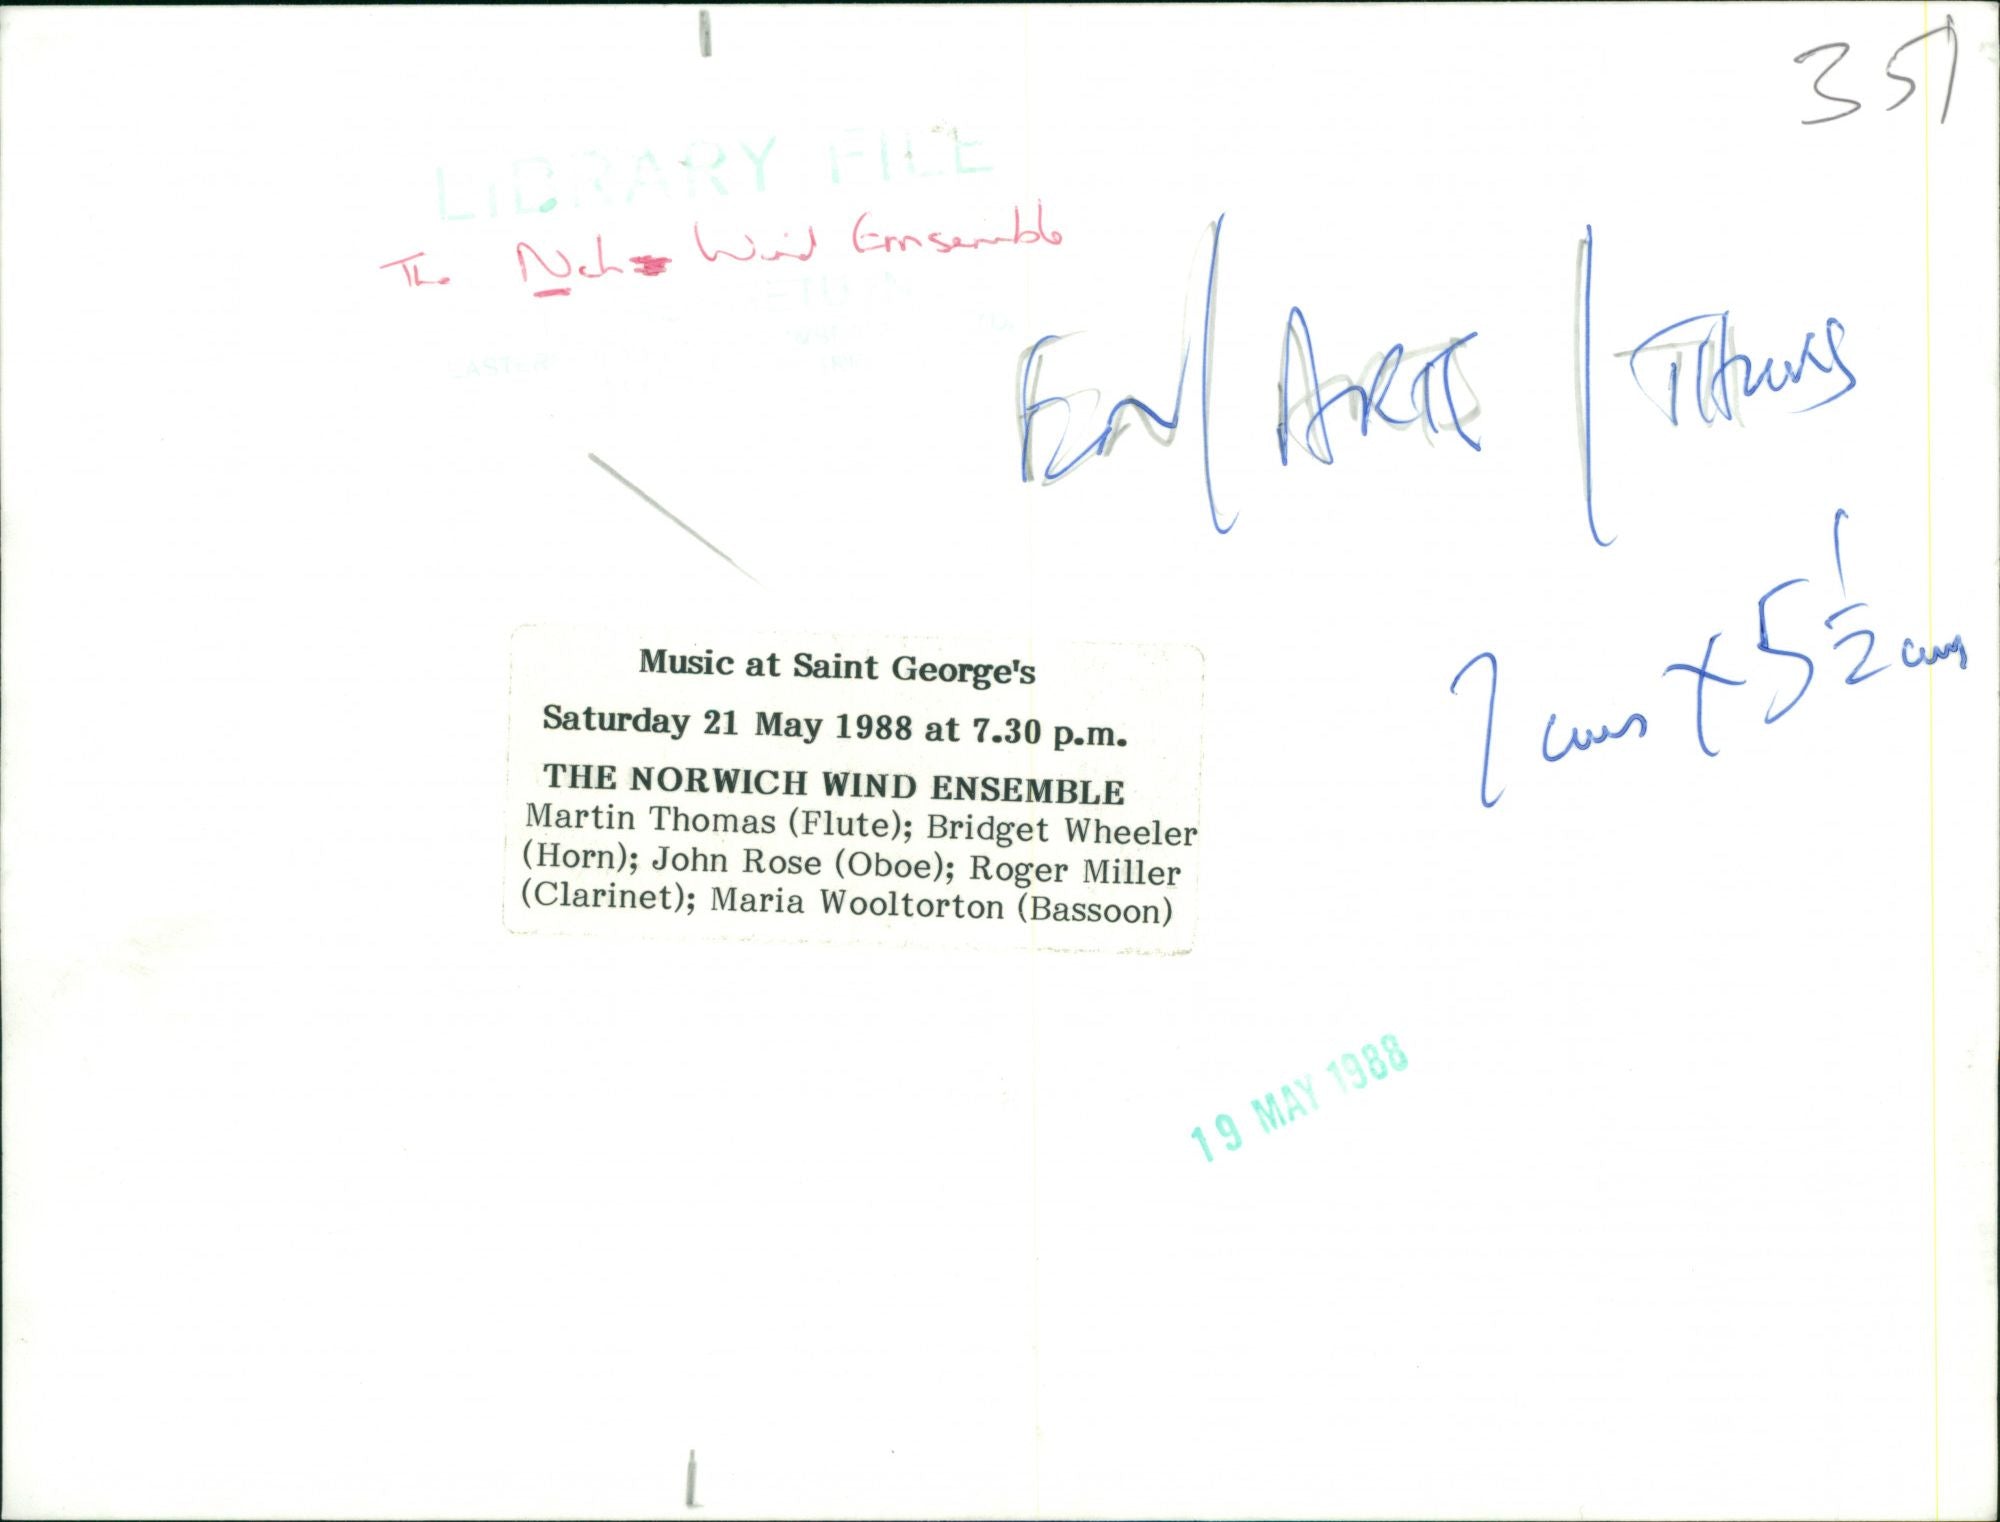 35
LIBRARY FILE
The Nch Wind Ensemble
EEN / ARTS / THURS
7 cms x 5 1/2 cms
Music at Saint George's
Saturday 21 May 1988 at 7.30 p.m.
THE NORWICH WIND ENSEMBLE
Martin Thomas (Flute); Bridget Wheeler
(Horn); John Rose (Oboe); Roger Miller
(Clarinet); Maria Wooltorton (Bassoon)
19 MAY 1988